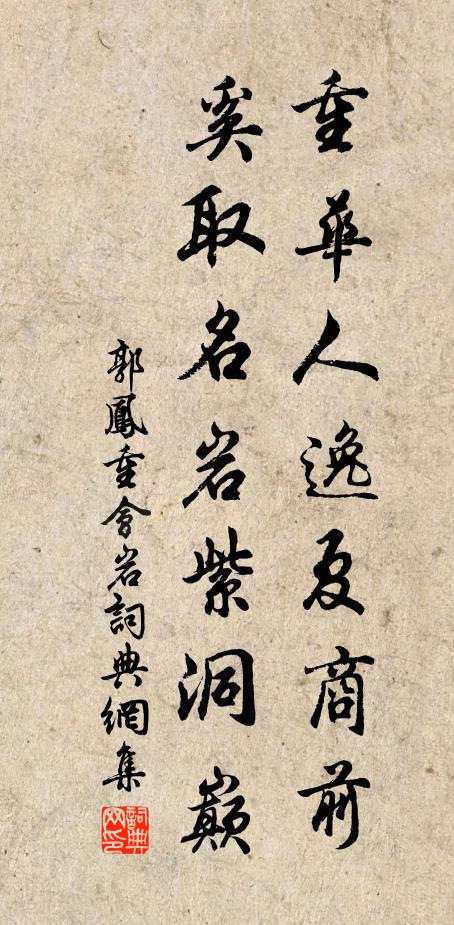 重華人逸夏商前
奚取名岩紫洞巔
郭鳳重會岩詞典網集
詞典网印